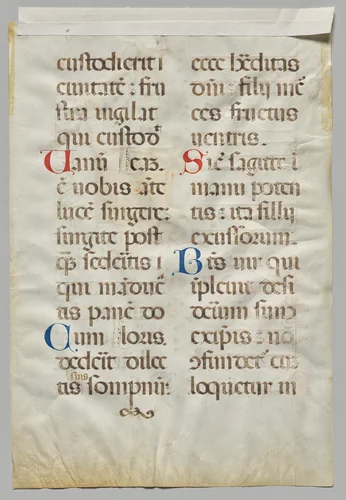 custodierit i
ciuitatē: fru
stra uigilat
qui custod̄
Uanū
ē uobis āte
lucē surgere:
surgite post
q̄ sedeitis i
qui māducā
tis panē do
Cum loris.
dederit dilec
tis somp̄nū:
suis
ecce hēditas
dn̄i filij m̄c
ces fructus
uentris.
Sic̄ sagitte ī
manu poten
tis: ita filij
excussorum.
Bt̄s uir qui
īpleuit desi
derium suum
ex ip̄is: nō
ↄfundetᷣ cū
loquetur in